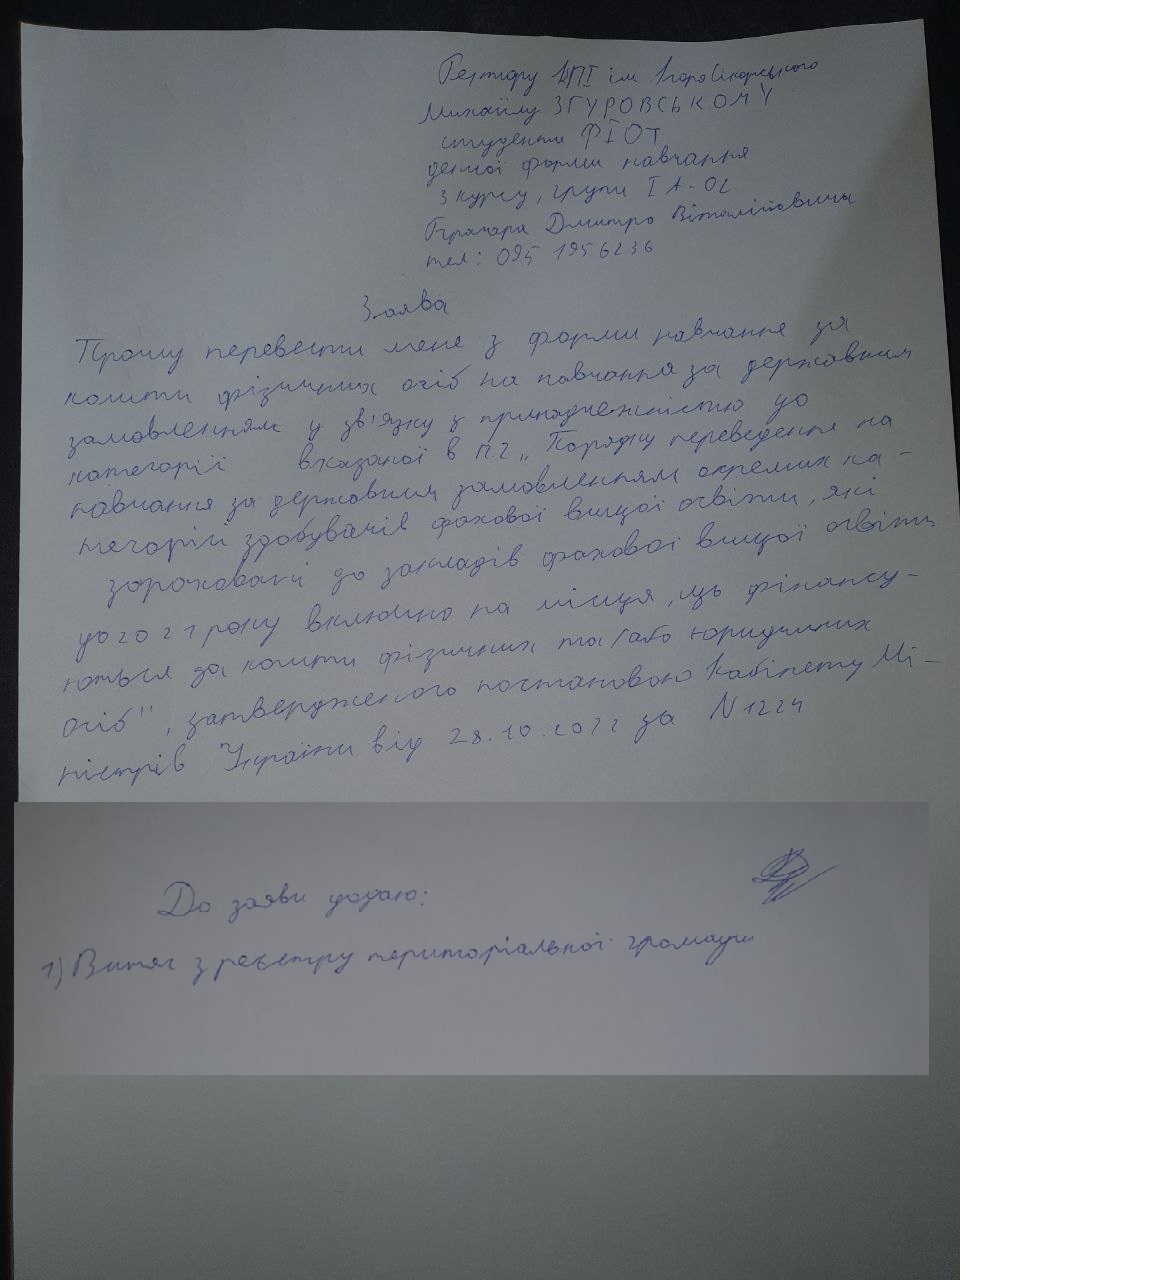 Ректору КПІ ім. Ігоря Сікорського
Михайлу ЗГУРОВСЬКОМУ
студента ФІОТ
денної форми навчання
3 курсу, групи ІА-02
Дмитро Віталійовича
тел: 095 1956236
Заява
Прошу перевести мене з форми навчання за
кошти фізичних осіб на навчання за державним
замовленням у зв'язку з приналежністю до
категорії вказаної в п.2 „Порядку переведення на
навчання за державним замовленням окремих ка-
тегорій здобувачів фахової вищої освіти, які
зараховані до закладів фахової вищої освіти
до 2021 року включно на місця, що фінансу-
ються за кошти фізичних та/або юридичних
осіб", затвердженого постановою Кабінету Мі-
ністрів України від 28.10.2022 за N1224
До заяви додаю:
1) Витяг з реєстру територіальної громади